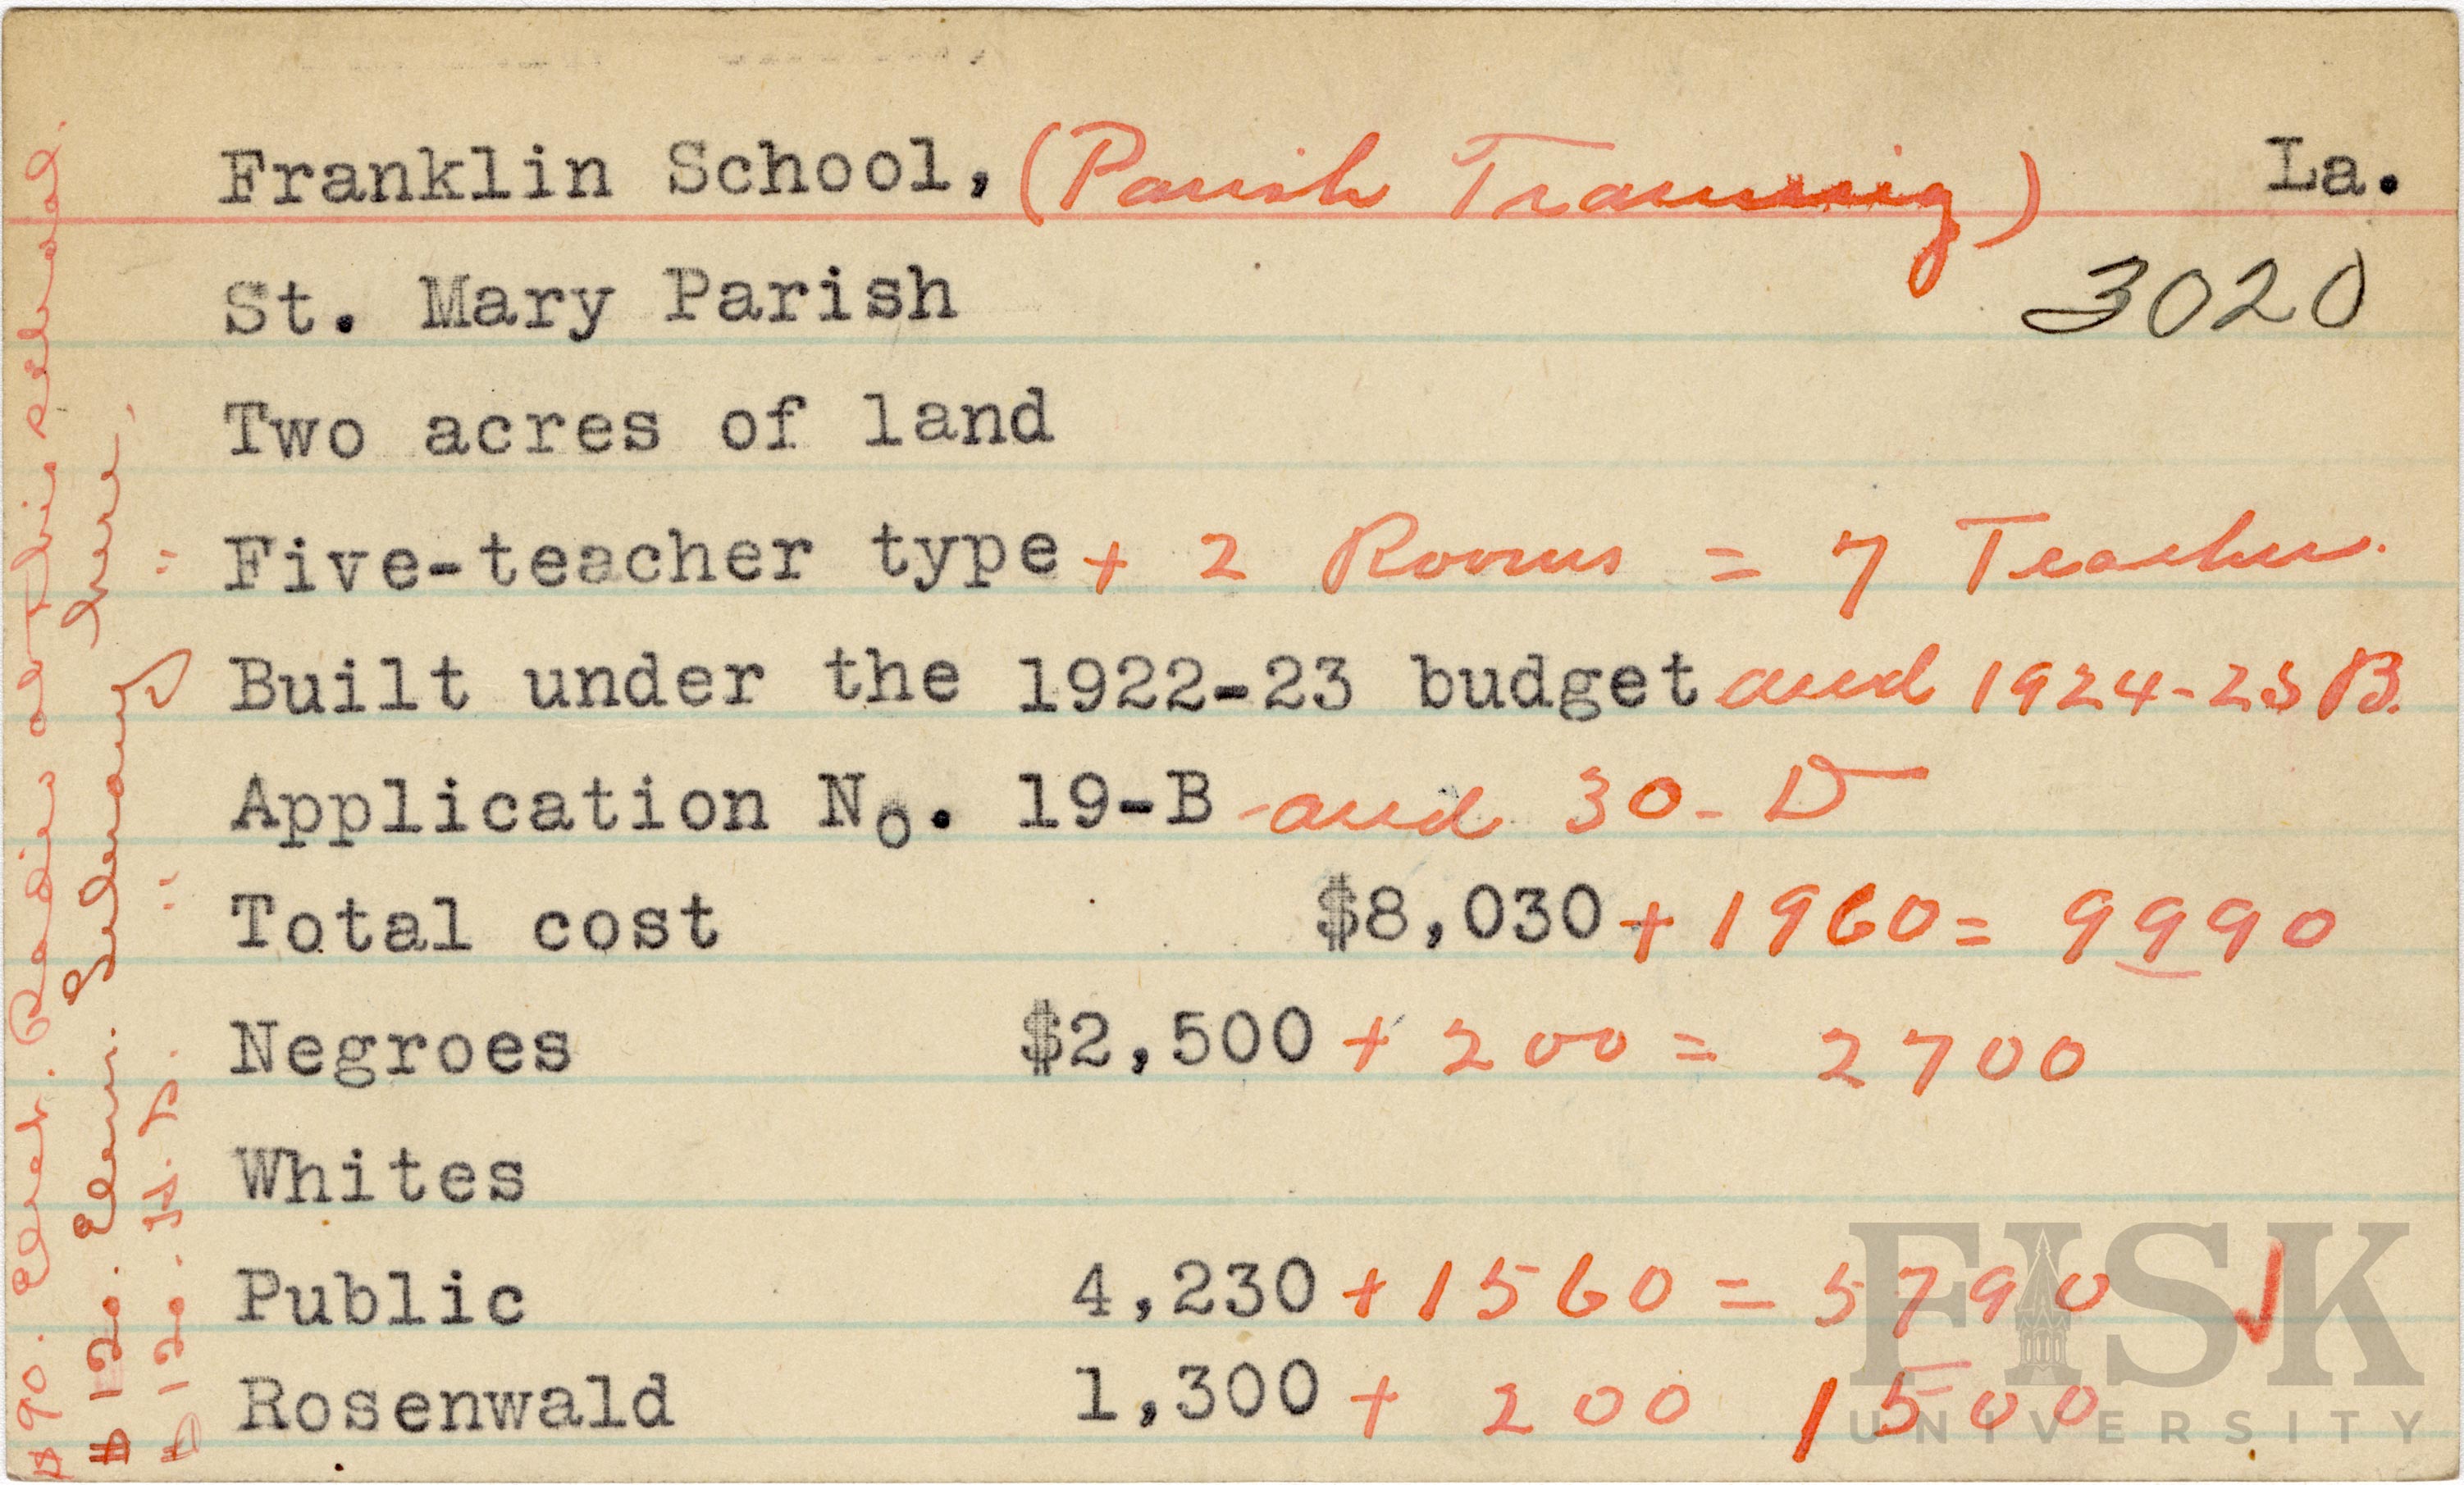 Franklin School, (Parish Training) La.
St. Mary Parish 3020
Two acres of land
Five-teacher type + 2 Rooms = 7 Teacher.
Built under the 1922-23 budget and 1924-25 B.
Application No. 19-B and 30-D
Total cost $8,030 + 1960 = 9990
Negroes $2,500 + 200 = 2700
Whites
Public 4,230 + 1560 = 5790 ✓
Rosenwald 1,300 + 200 1500
$90. Elect. Radio at this school.
$120. Elem. Library here.
$120. H.S. " "
FISK
UNIVERSITY